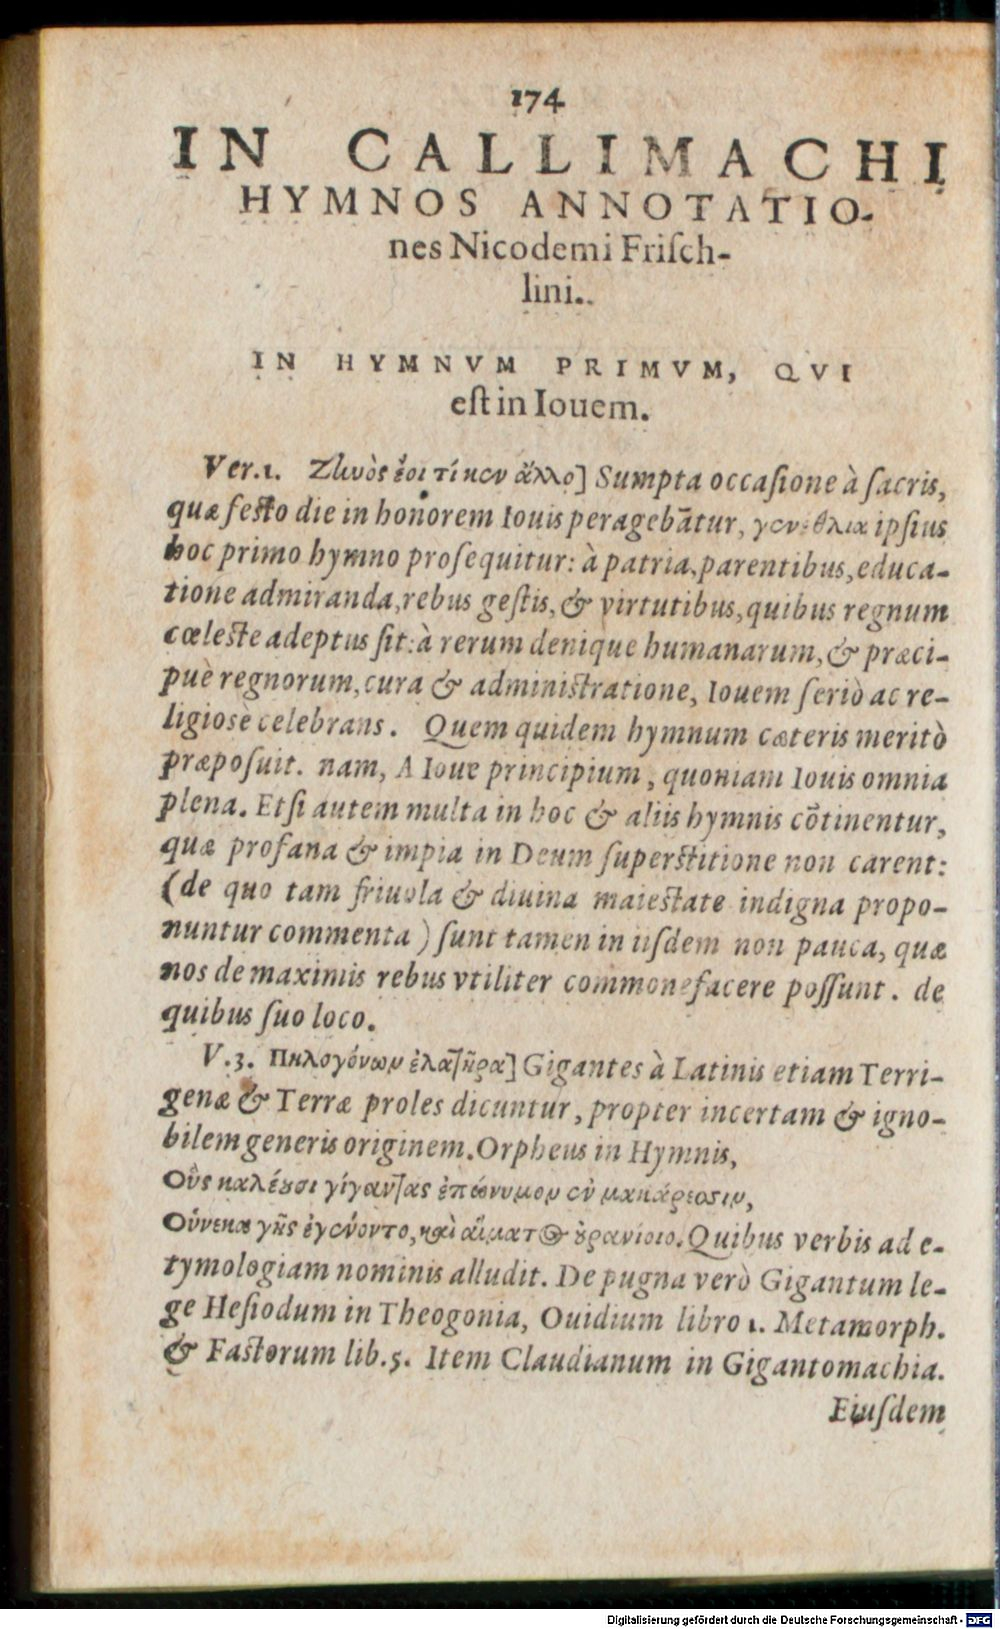 174
IN CALLIMACHI
HYMNOS ANNOTATIO-
nes Nicodemi Friſch-
lini.
IN HYMNVM PRIMVM, QVI
eſt in Iouem.
Ver.1. Ζίωὸς ἔοι τί κεν ἄλλο] Sumpta occaſione à ſacris,
quæ feſto die in honorem Iouis peragebātur, γενέθλια ipſius
hoc primo hymno proſequitur: à patria, parentibus, educa-
tione admiranda, rebus geſtis, & virtutibus, quibus regnum
cœleſte adeptus ſit: à rerum denique humanarum, & præci-
puè regnorum, cura & adminiſtratione, Iouem ſeriò ac re-
ligiosè celebrans. Quem quidem hymnum cæteris meritò
præpoſuit. nam, A Ioue principium, quoniam Iouis omnia
plena. Etſi autem multa in hoc & aliis hymnis cōtinentur,
quæ profana & impia in Deum ſuperſtitione non carent:
(de quo tam friuola & diuina maieſtate indigna propo-
nuntur commenta) ſunt tamen in iiſdem non pauca, quæ
nos de maximis rebus vtiliter commonefacere poſſunt. de
quibus ſuo loco.
V.3. Πηλογόνωμ ἐλατῆρα] Gigantes à Latinis etiam Terri-
genæ & Terræ proles dicuntur, propter incertam & igno-
bilem generis originem. Orpheus in Hymnis,
Οὓς καλέουσι γίγαντας ἐπώνυμον ἐν μακάρεσσιν,
Οὕνεκα γῆς ἐγένοντο, καὶ αἵματος οὐρανίοιο. Quibus verbis ad e-
tymologiam nominis alludit. De pugna verò Gigantum le-
ge Heſiodum in Theogonia, Ouidium libro 1. Metamorph.
& Faſtorum lib.5. Item Claudianum in Gigantomachia.
Eiuſdem
Digitalisierung gefördert durch die Deutsche Forschungsgemeinschaft - DFG